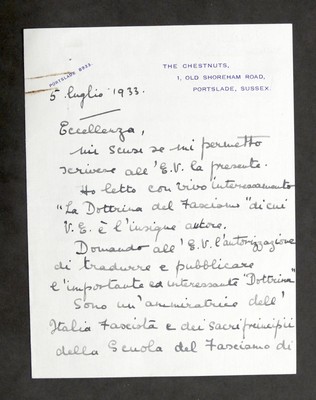 PORTSLADE 8953.
THE CHESTNUTS,
1, OLD SHOREHAM ROAD,
PORTSLADE, SUSSEX.
5 luglio 1933.
Eccellenza,
mi scusi se mi permetto
scrivere all' E.V. la presente.
Ho letto con vivo interessamento
"La Dottrina del Fascismo" di cui
V.E. è l'insigne autore.
Domando all' E.V. l'autorizzazione
di tradurre e pubblicare
l'importante ed interessante "Dottrina"
Sono un'ammiratrice dell'
Italia Fascista e dei sacri principii
della Scuola del Fascismo di